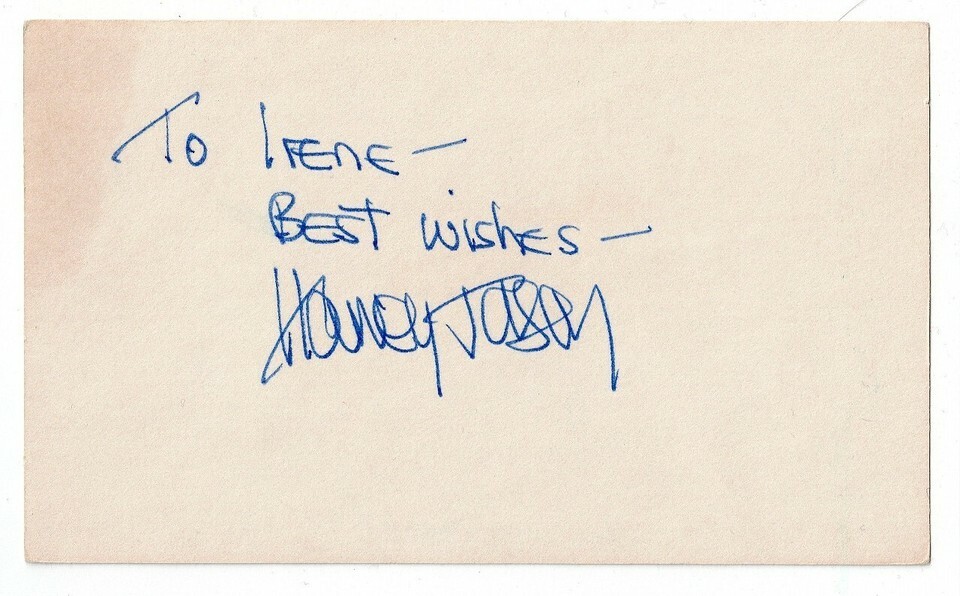 To Irene —
Best wishes —
Harvey Jason